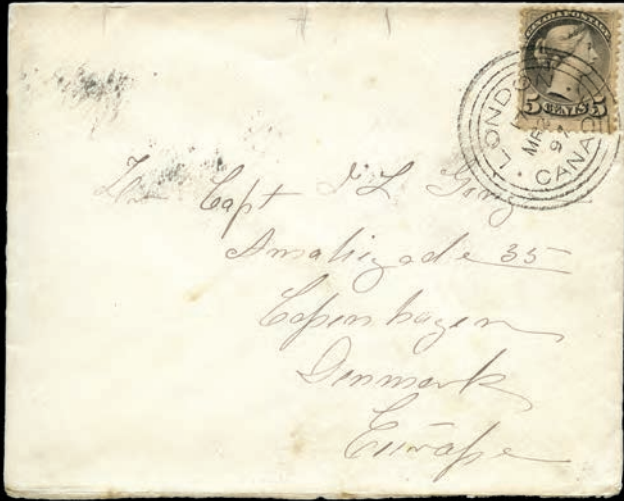 CANADA POSTAGE
5 CENTS 5
LONDON CANADA
MR
97
Capt J L
Amaligade 35
Copenhagen
Denmark
Europe